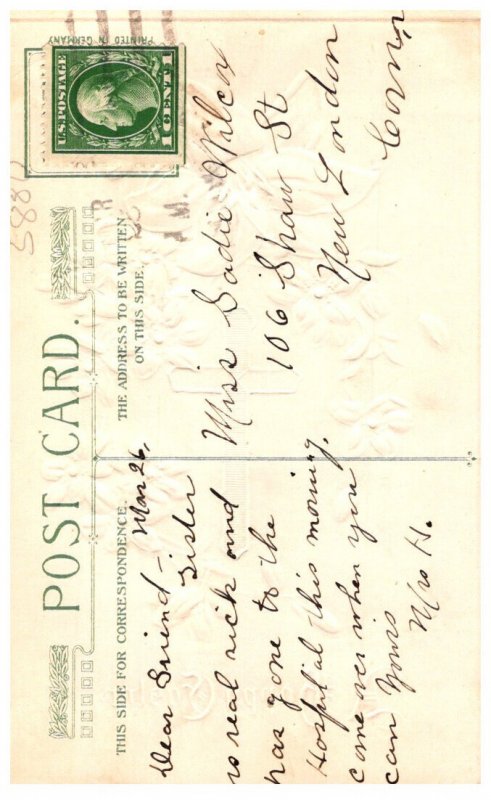 POST CARD.
THIS SIDE FOR CORRESPONDENCE.
THE ADDRESS TO BE WRITTEN
ON THIS SIDE.
PRINTED IN GERMANY
U.S. POSTAGE
1 CENT 1
5885
A.M.
Mar 26,
Dear Friend –
Sister
is real sick and
has gone to the
Hospital this morning.
come over when you
can Yours
Mrs H.
Miss Sadie Wilcox
106 Shaw St
New London
Conn,